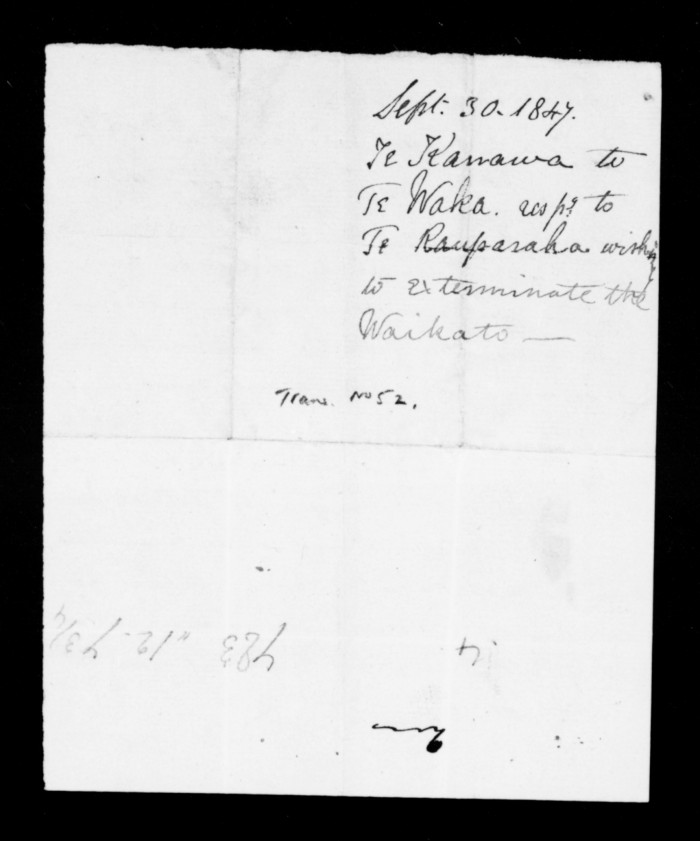 Sept. 30. 1847.
Te Kanawa to
Te Waka. resp.g to
Te Rauparaha wishing
to exterminate the
Waikato —
Trans. No 52.
783 " 12. 7 3/4